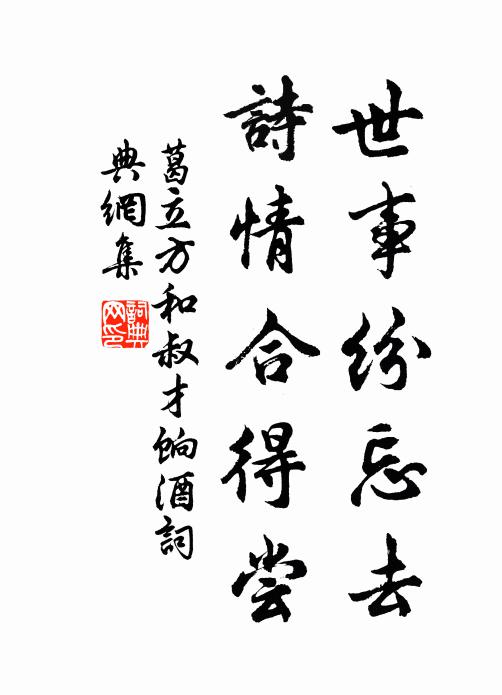 世事紛忘去
詩情合得嘗
葛立方和叔才餉酒詞
典網集
詞典網印